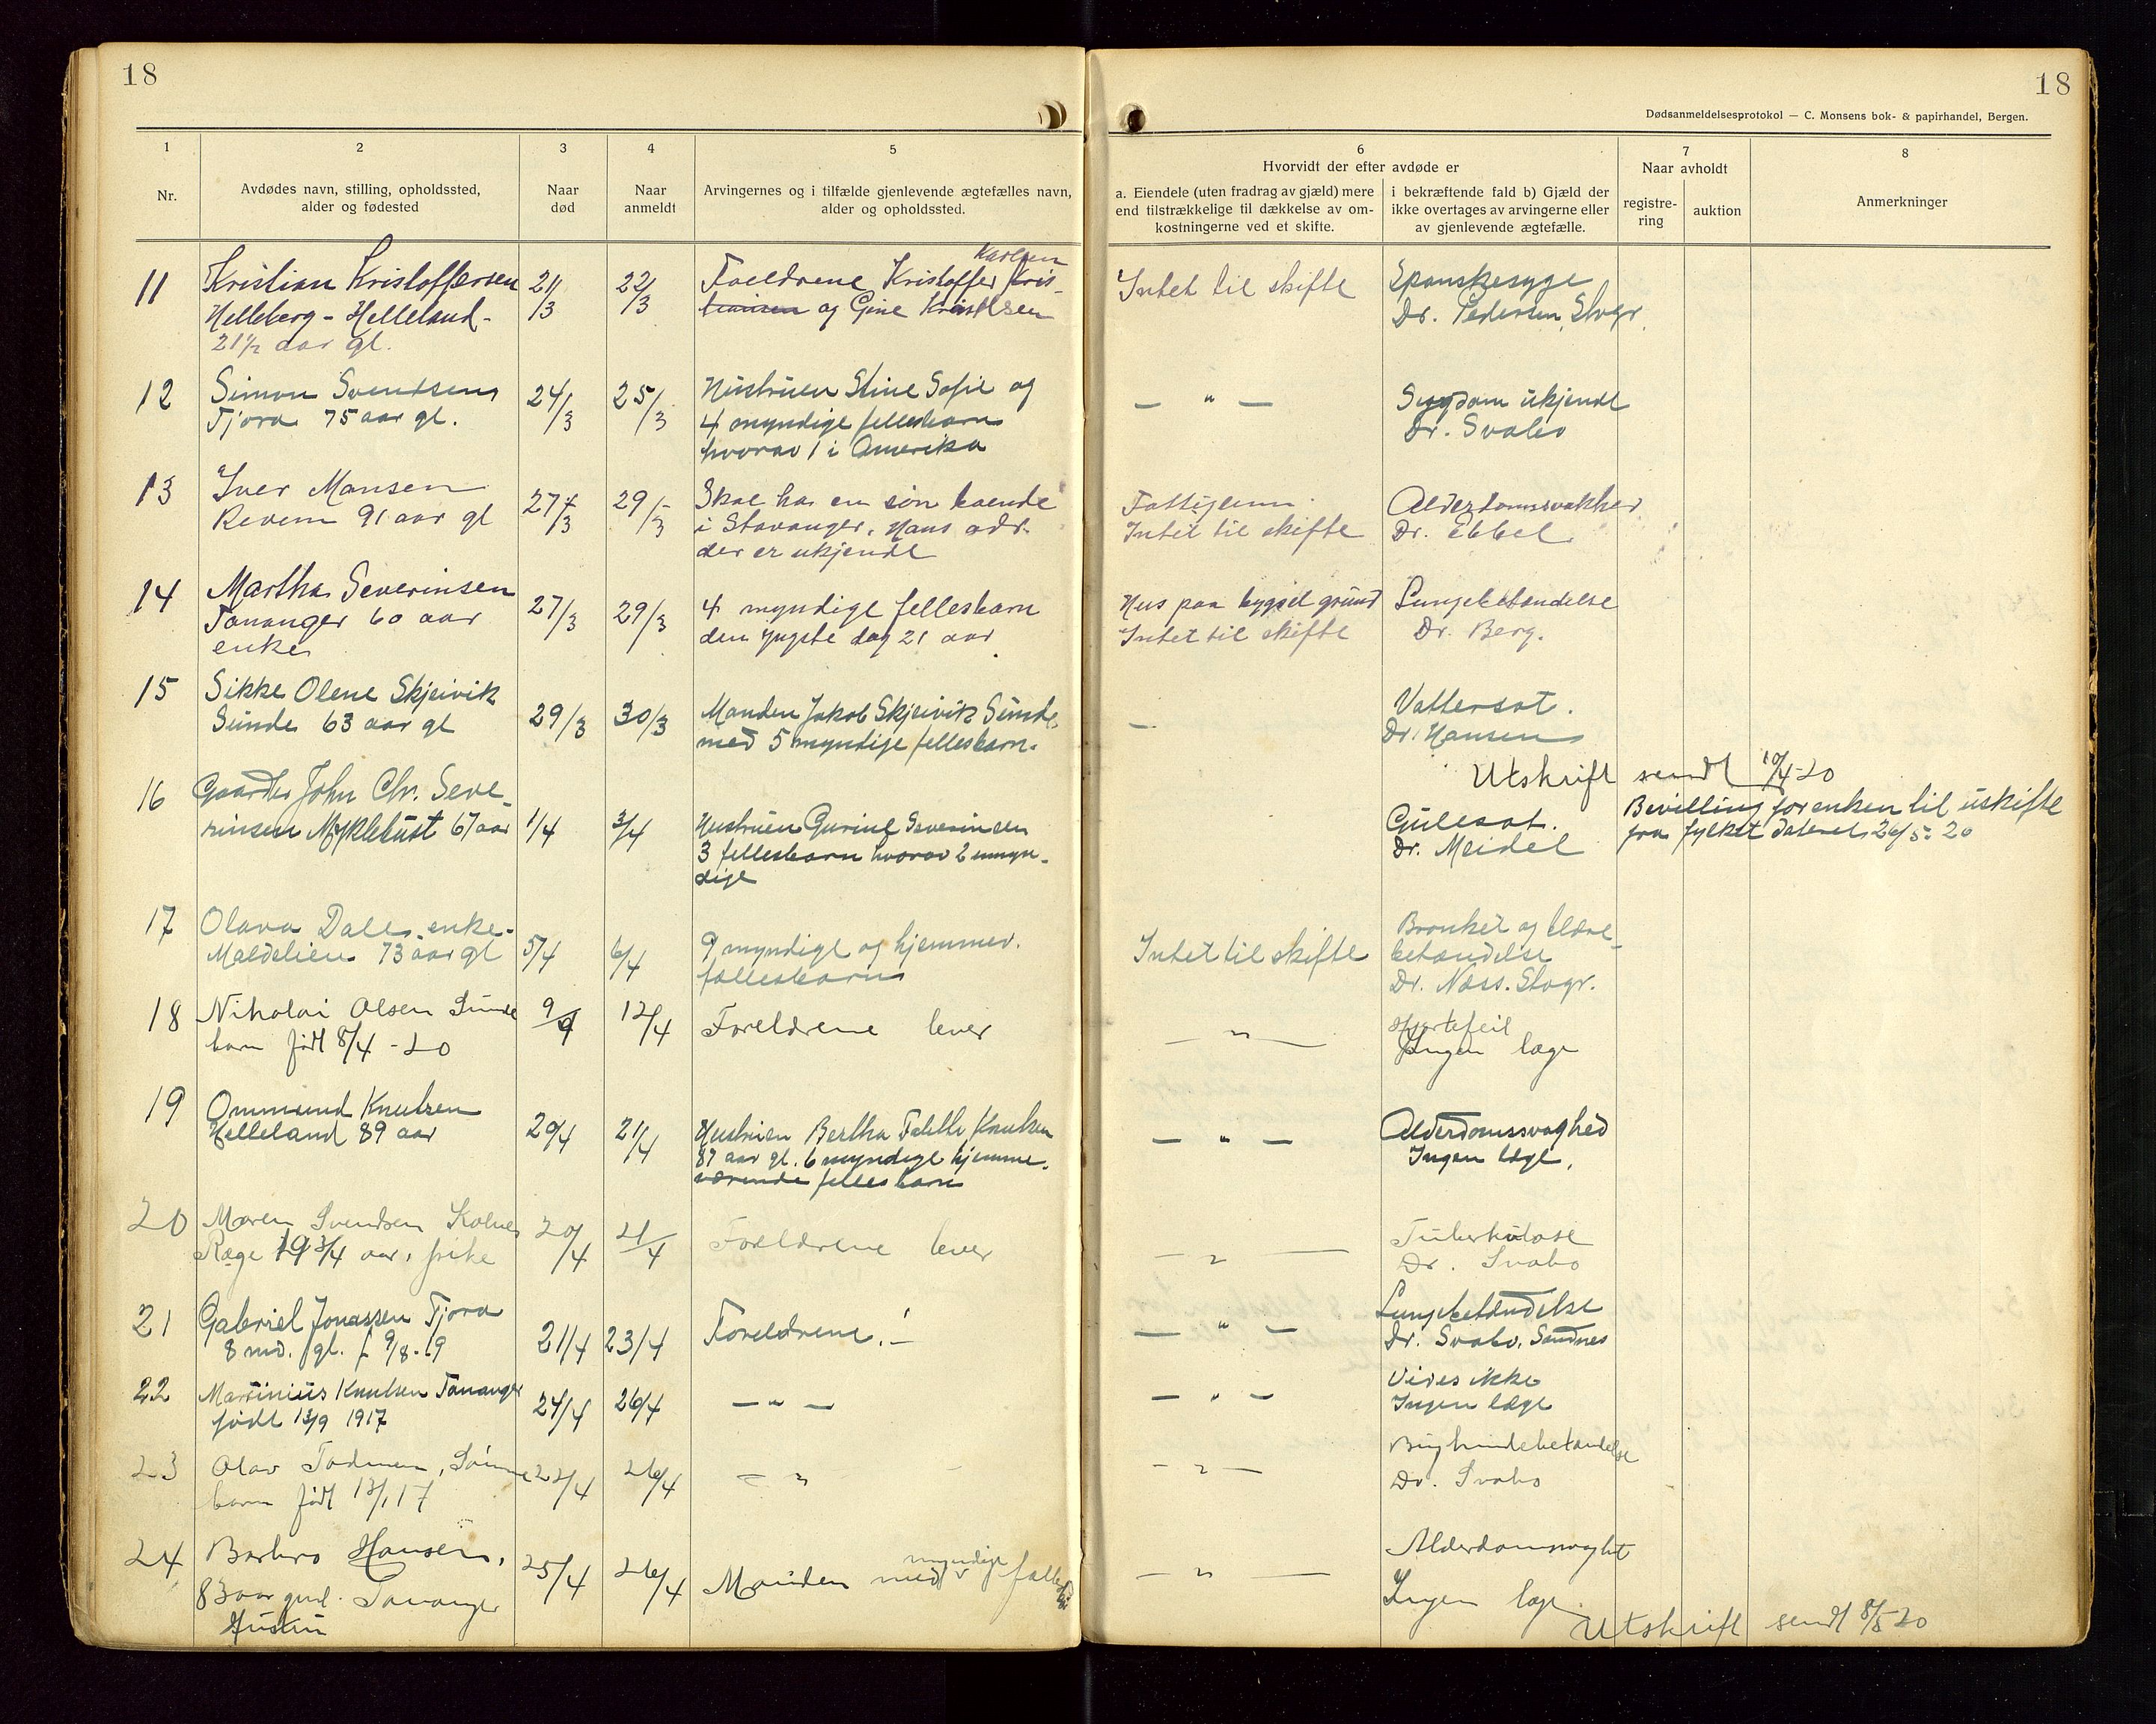 18
18
Dødsanmeldelsesprotokol — C. Monsens bok- & papirhandel, Bergen.
1
2
3
4
5
6
7
8
Nr.
Avdødes navn, stilling, opholdssted,
alder og fødested
Naar
død
Naar
anmeldt
Arvingernes og i tilfælde gjenlevende ægtefælles navn,
alder og opholdssted.
Hvorvidt der efter avdøde er
a. Eiendele (uten fradrag av gjæld) mere
end tilstrækkelige til dækkelse av om-
kostningerne ved et skifte.
i bekræftende fald b) Gjæld der
ikke overtages av arvingerne eller
av gjenlevende ægtefælle.
Naar avholdt
registre-
ring
auktion
Anmerkninger
11
Kristian Kristoffersen
Helleberg - Helleland -
21½ aar gl.
21/3
22/3
Karlsen
Foreldrene Kristoffer Kris-
tiansen og Gine
Intet til skifte
Spanskesyge
Dr. Pedersen, Stvgr.
12
Simon Svendsen
Tjora 75 aar gl.
24/3
25/3
Hustruen Stine Sofie og
4 myndige fellesbarn
hvorav 1 i Amerika
— " —
Sygdom ukjendt
Dr. Svabo
13
Iver Mansen
Revem 91 aar gl
27/3
29/3
Skal ha en søn boende
i Stavanger. Hans adr.
der er ukjendt
Fattiglem
Intet til skifte
Alderdomssvakhed
Dr. Ebbel
14
Martha Severinsen
Tananger 60 aar
enke
27/3
29/3
4 myndige fellesbarn
den yngste dog 21 aar
Hus paa bygsel grund
Intet til skifte
Lungebetændelse
Dr. Berg.
15
Sikke Olene Skjeivik
Sunde 63 aar gl
29/3
30/3
Manden Jakob Skjeivik Sunde
med 5 myndige fellesbarn.
—
Vattersot.
Dr. Hansen
Utskrift sendt 10/4-20
16
Gaardbr John Chr. Seve-
rinsen Myklebust 67 aar
1/4
3/4
Hustruen Gurine Severinsen
3 fellesbarn hvorav 2 umyn-
dige
Gulesot.
Dr. Meidel
Bevilling for enken til uskifte
fra fylket dateret 26/5-20
17
Olava Dale, enke-
Maldelien 73 aar gl
5/4
6/4
9 myndige og hjemmev.
fellesbarn
Intet til skifte
Bronket og blære-
betændelse
Dr. Næss. Stvgr.
18
Nikolai Olsen Sunde
barn født 8/4 - 20
9/4
12/4
Foreldrene lever
— " —
Hjertefeil
Ingen læge
19
Ommund Knutsen
Helleland 89 aar
20/4
21/4
Hustruen Bertha Knutsen
87 aar gl. 6 myndige hjemme-
værende fellesbarn
— " —
Alderdomssvaghed
Ingen læge.
20
Maren Svendsen Kolnes
Ræge 19 3/4 aar, pike
20/4
21/4
Foreldrene lever
— " —
Tuberkulose
Dr. Svabo
21
Gabriel Jonassen Tjora
8 md. gl. f 9/8-19
21/4
23/4
Foreldrene. —
— " —
Lungebetændelse
Dr. Svabo, Sandnes
22
Martinius Knutsen Tananger
født 13/9 1917
24/4
26/4
— " —
— " —
Vides ikke
Ingen læge
23
Olav Todnem, Sømme
barn født 13/1 17
22/4
26/4
— "
— " —
Bughindebetændelse
Dr. Svabo
24
Barbro Hansen,
83 aar gml. Tananger
Hustru
25/4
26/4
myndige
Manden med fælles
— " —
Alderdomsvaghet
Ingen læge.
Utskrift sendt 8/5 20